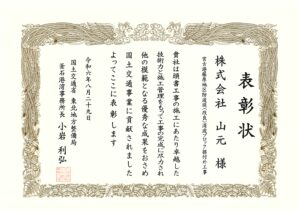 表彰状
宮古港藤原地区防波堤(改良)消波ブロック据付外工事
株式会社 山元 様
貴社は頭書工事の施工にあたり卓越した
技術力と施工管理をもって工事の完成に尽力され
他の模範となる優秀な成果をおさめ
国土交通事業に貢献されました
よってここに表彰します
令和六年八月二十九日
国土交通省 東北地方整備局
釜石港湾事務所長 小岩 利弘